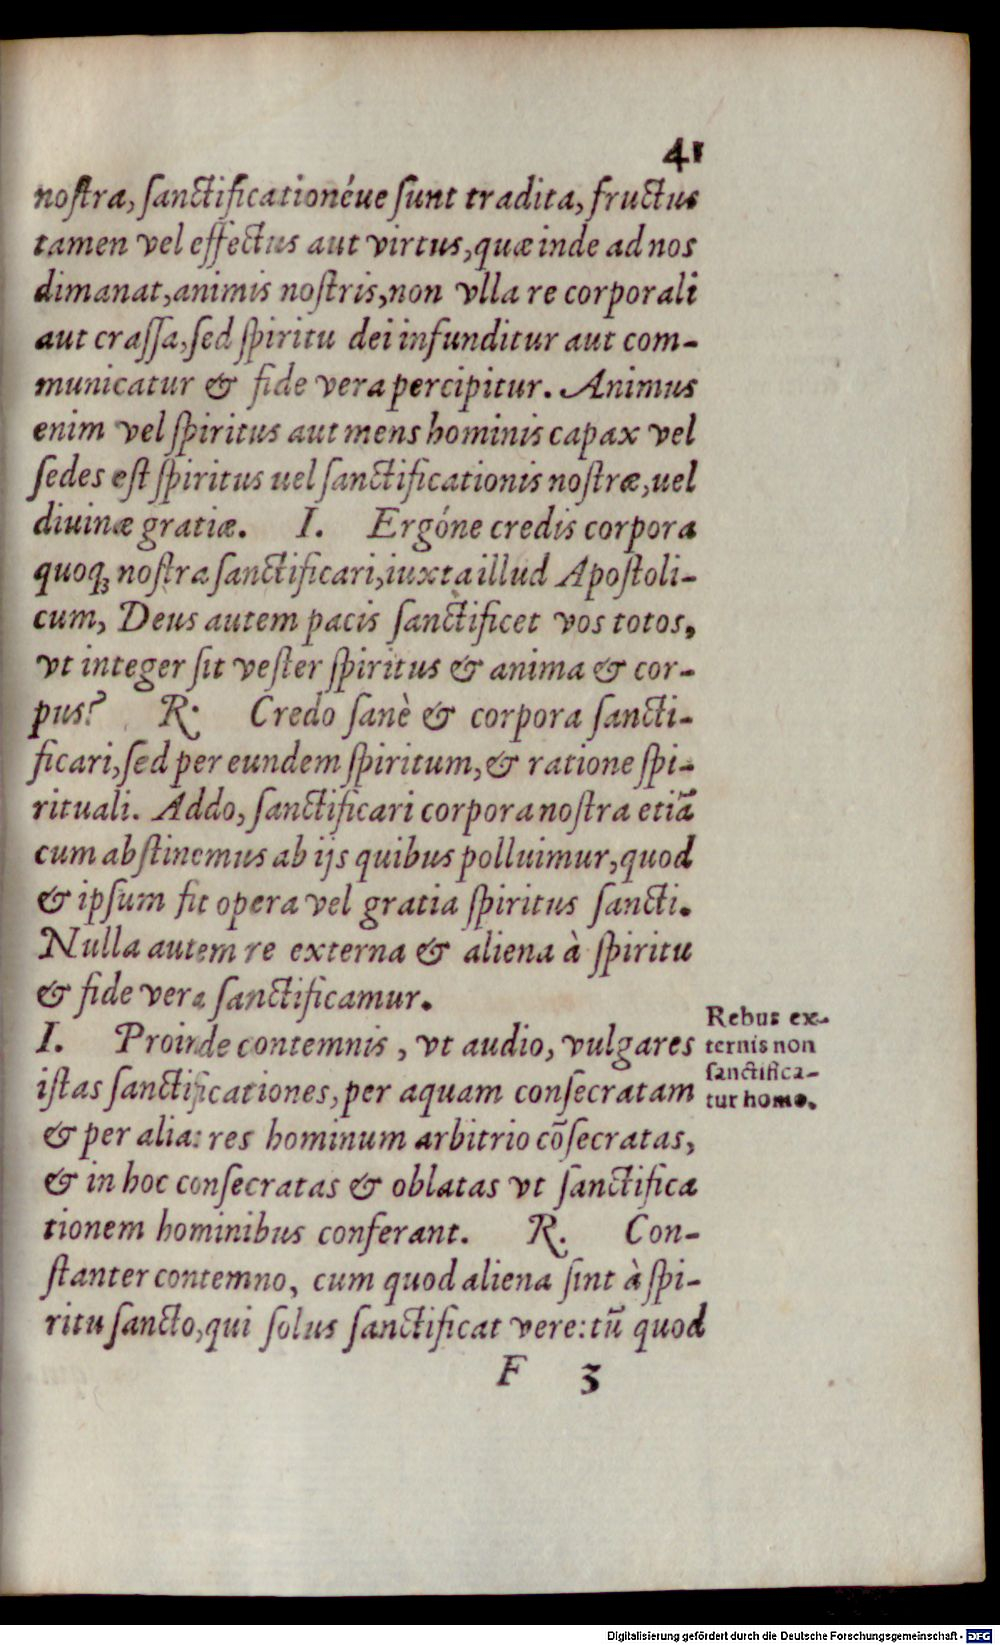 41
noſtra, ſanctificationéue ſunt tradita, fructus
tamen vel effectus aut virtus, quæ inde ad nos
dimanat, animis noſtris, non vlla re corporali
aut craſſa, ſed ſpiritu dei infunditur aut com-
municatur & fide vera percipitur. Animus
enim vel ſpiritus aut mens hominis capax vel
ſedes eſt ſpiritus uel ſanctificationis noſtræ, uel
diuinæ gratiæ. I. Ergóne credis corpora
quoq; noſtra ſanctificari, iuxta illud Apoſtoli-
cum, Deus autem pacis ſanctificet vos totos,
vt integer ſit veſter ſpiritus & anima & cor-
pus? R. Credo ſanè & corpora ſancti-
ficari, ſed per eundem ſpiritum, & ratione ſpi-
rituali. Addo, ſanctificari corpora noſtra etiã
cum abſtinemus ab ijs quibus polluimur, quod
& ipſum fit opera vel gratia ſpiritus ſancti.
Nulla autem re externa & aliena à ſpiritu
& fide vera ſanctificamur.
I. Proinde contemnis, vt audio, vulgares
iſtas ſanctificationes, per aquam conſecratam
& per alias res hominum arbitrio cõſecratas,
& in hoc conſecratas & oblatas vt ſanctifica
tionem hominibus conferant. R. Con-
ſtanter contemno, cum quod aliena ſint à ſpi-
ritu ſancto, qui ſolus ſanctificat vere: tũ quod
Rebus ex-
ternis non
ſanctifica-
tur homo.
F 3
Digitalisierung gefördert durch die Deutsche Forschungsgemeinschaft - DFG